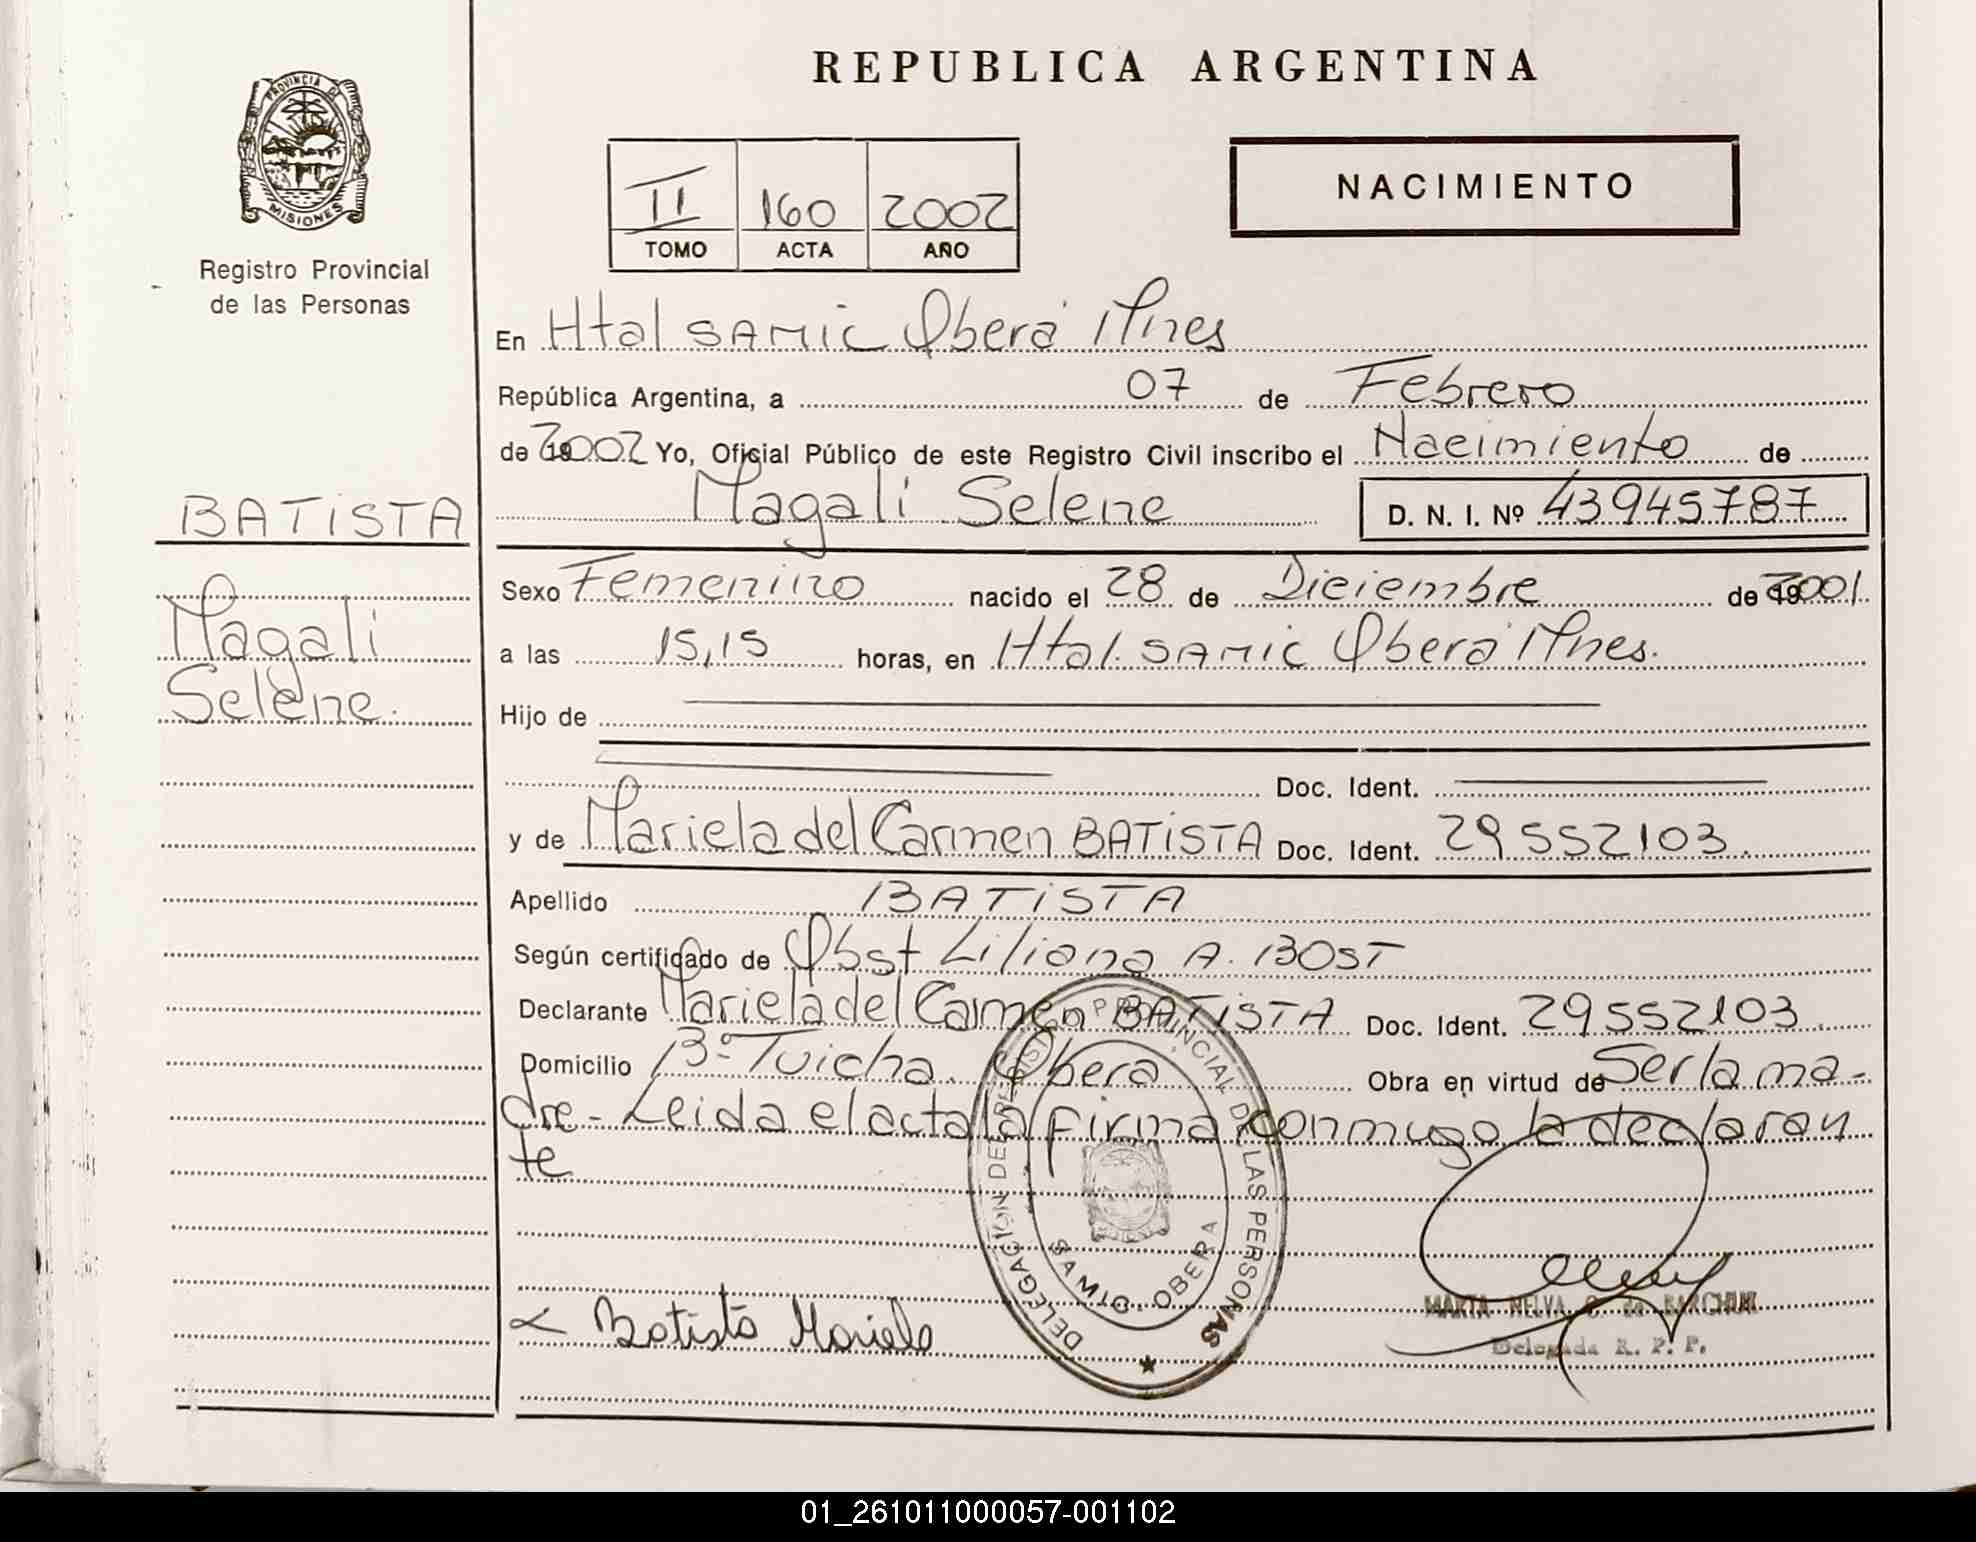 REPUBLICA ARGENTINA
PROVINCIA DE
MISIONES
Registro Provincial
de las Personas
II 160 2002
TOMO ACTA AÑO
NACIMIENTO
En Htal SAMIC Oberá Mnes
República Argentina, a 07 de Febrero
de 2002 Yo, Oficial Público de este Registro Civil inscribo el Nacimiento de
Magali Selene D. N. I. Nº 43945787
BATISTA
Magali
Selene.
Sexo Femenino nacido el 28 de Diciembre de 2001.
a las 15,15 horas, en Htal. SAMIC Oberá Mnes.
Hijo de
Doc. Ident.
y de Mariela del Carmen BATISTA Doc. Ident. 29552103.
Apellido BATISTA
Según certificado de Obst Liliana A. BOST
Declarante Mariela del Carmen BATISTA Doc. Ident. 29552103
Domicilio Bº Tuicha. Oberá Obra en virtud de Ser la ma-
dre - Leida el acta la firma conmigo la declaran
te
DELEGACION DE REGISTRO PROVINCIAL DE LAS PERSONAS
SAMIC - OBERA
Batista Mariela
MARTA NELVA de BARCHUK
Delegada R. P. P.
01_261011000057-001102